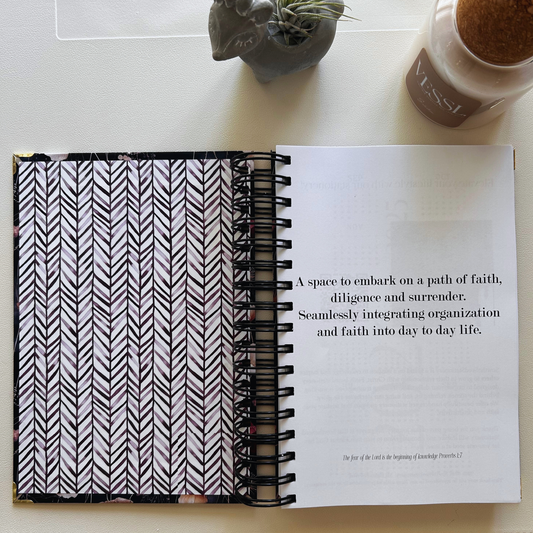 VESSE
A space to embark on a path of faith,
diligence and surrender.
Seamlessly integrating organization
and faith into day to day life.
The fear of the Lord is the beginning of knowledge Proverbs 1:7